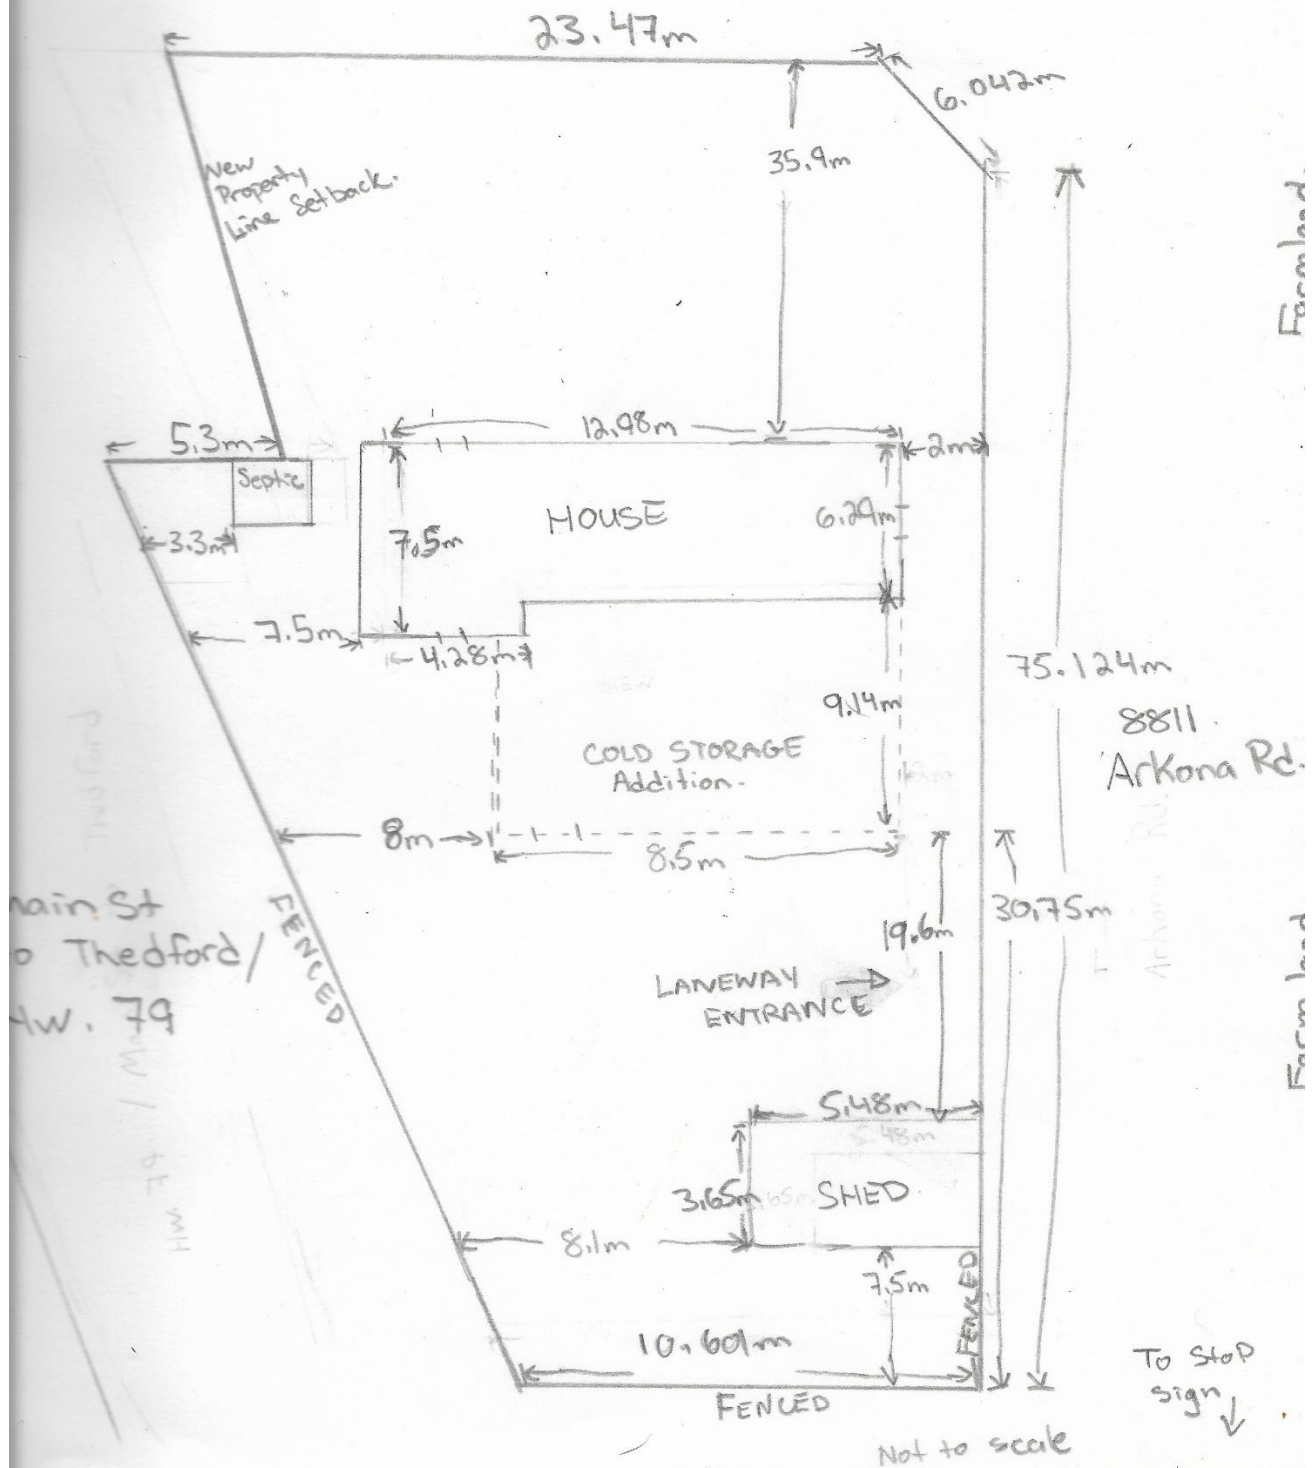 23.47m
6.042m
35.9m
New
Property
Line Setback.
Farmland
5.3m
12.98m
2m
Septic
HOUSE
6.29m
7.5m
3.3m
7.5m
4.28m
75.124m
9.14m
8811
Arkona Rd.
COLD STORAGE
Addition.
8m
8.5m
main St
o Thedford/
Hw. 79
FENCED
19.6m
30.75m
LANEWAY
ENTRANCE
Farm land
5.48m
3.65m
SHED
8.1m
7.5m
FENCED
10.601m
FENCED
To Stop
sign
Not to scale